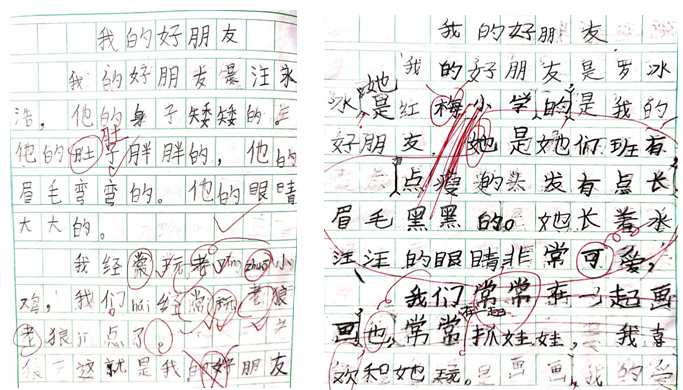 我的好朋友
我的好朋友是汪永
浩，他的身子矮矮的。
肚
他的肚子胖胖的，他的
眉毛弯弯的。他的眼睛
大大的。
我经常玩老 zhuō 小
鸡，我们 hái 经常玩老狼
老狼 几点了。
这就是我的好朋友
我的好朋友
她
我的好朋友是罗冰
冰，是红梅小学的是我的
好朋友，她是她们班有
点瘦的头发有点长
眉毛黑黑的。她长着水
汪汪的眼睛非常可爱，
我们常常在一起画
画也，常常抓娃娃，我喜
欢和她玩。画画，我的